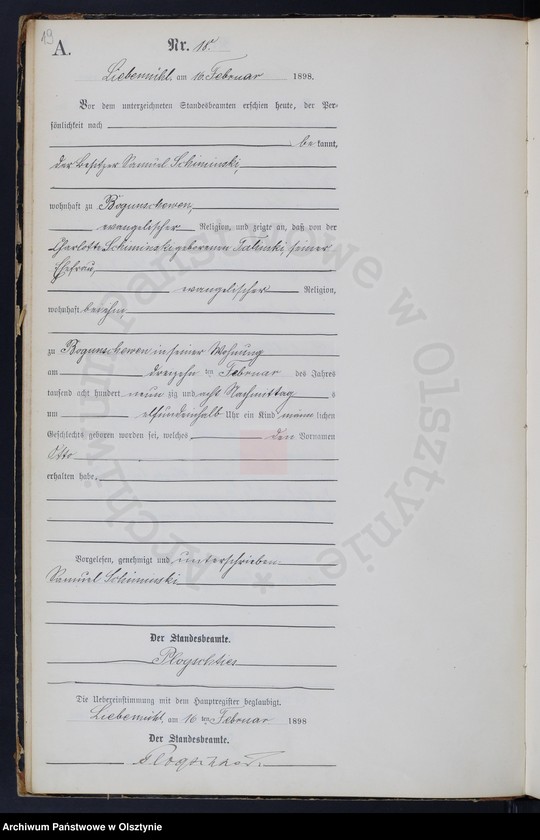 19
A.
Nr. 18.
Liebemühl, am 16. Februar 1898.
Vor dem unterzeichneten Standesbeamten erschien heute, der Per-
sönlichkeit nach
be kannt,
der Besitzer Samuel Schiminski,
wohnhaft zu Bogunschewen,
evangelischer Religion, und zeigte an, daß von der
Charlotte Schiminski geborenen Talinski, seiner
Ehefrau,
evangelischer Religion,
wohnhaft bei ihm,
zu Bogunschewen in seiner Wohnung
am dreizehn ten Februar des Jahres
tausend acht hundert neun zig und acht Nachmittag s
um elfundeinhalb Uhr ein Kind männ lichen
Geschlechts geboren worden sei, welches den Vornamen
Otto
erhalten habe.
Vorgelesen, genehmigt und unterschrieben
Samuel Schiminski
Der Standesbeamte.
Die Uebereinstimmung mit dem Hauptregister beglaubigt.
Liebemühl, am 16 ten Februar 1898
Der Standesbeamte.
Archiwum Państwowe w Olsztynie *
Archiwum Państwowe w Olsztynie